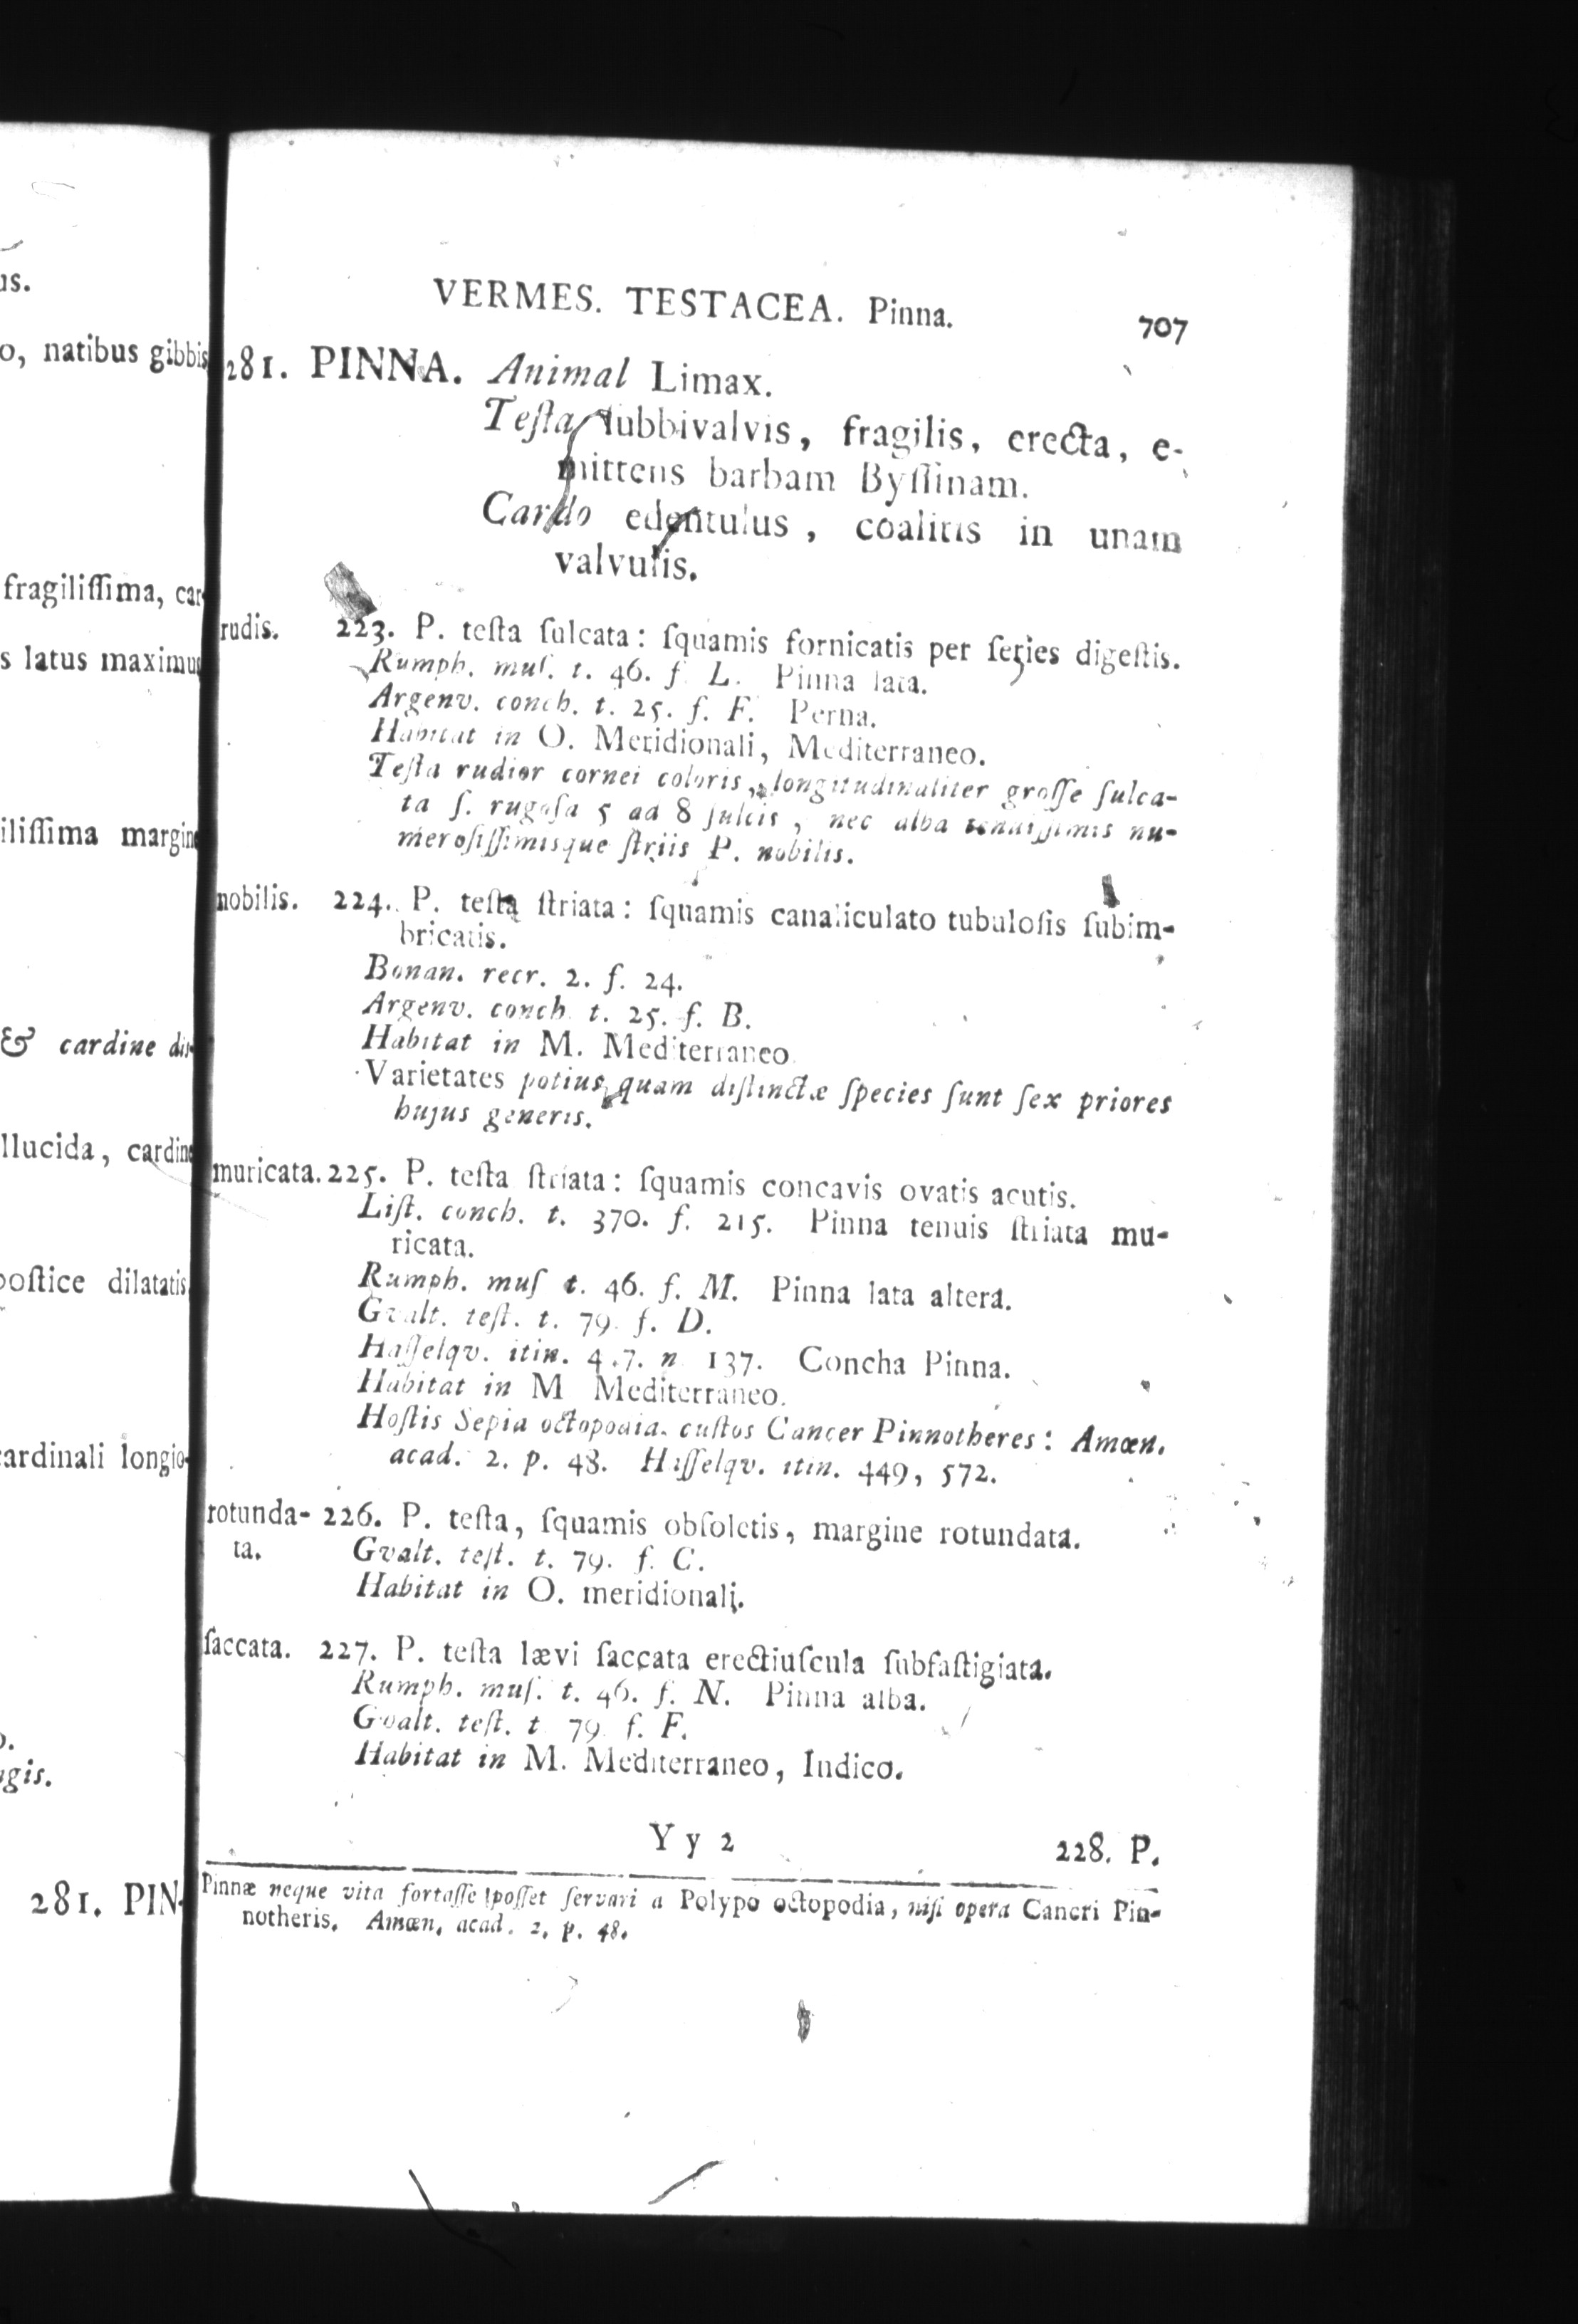 us.
o, natibus gibbis
fragiliſſima, car-
s latus maximus
iliſſima margine
& cardine dis-
llucida, cardine
poſtice dilatatis
cardinali longio-
o.
ngis.
281. PIN-
VERMES. TESTACEA. Pinna. 707
281. PINNA. Animal Limax.
Teſta ſubbivalvis, fragilis, erecta, e-
mittens barbam Byſſinam.
Cardo edentulus, coalitis in unam
valvulis.
rudis. 223. P. teſta ſulcata: ſquamis fornicatis per ſeries digeſtis.
Rumph. muſ. t. 46. f L. Pinna lata.
Argenv. conch. t. 25. f. F. Perna.
Habitat in O. Meridionali, Mediterraneo.
Teſta rudior cornei coloris, longitudinaliter groſſe ſulca-
ta ſ. rugoſa 5 ad 8 ſulcis, nec alba tenuiſſimis nu-
meroſiſſimisque ſtriis P. nobilis.
nobilis. 224. P. teſta ſtriata: ſquamis canaliculato tubuloſis ſubim-
bricatis.
Bonan. recr. 2. f. 24.
Argenv. conch t. 25. f. B.
Habitat in M. Mediterraneo
Varietates potius quam diſtinctæ ſpecies ſunt ſex priores
hujus generis.
muricata. 225. P. teſta ſtriata: ſquamis concavis ovatis acutis.
Liſt. conch. t. 370. f. 215. Pinna tenuis ſtriata mu-
ricata.
Rumph. muſ t. 46. f. M. Pinna lata altera.
Gvalt. teſt. t. 79. f. D.
Haſſelqv. itin. n 137. Concha Pinna.
Habitat in M Mediterraneo.
Hoſtis Sepia octopodia. cuſtos Cancer Pinnotheres: Amœn.
acad. 2. p. 48. Haſſelqv. itin. 449, 572.
rotunda- 226. P. teſta, ſquamis obſoletis, margine rotundata.
ta. Gvalt. teſt. t. 79. f. C.
Habitat in O. meridionali.
ſaccata. 227. P. teſta lævi ſaccata erectiuſcula ſubfaſtigiata.
Rumph. muſ. t. 46. f. N. Pinna alba.
Gvalt. teſt. t 79 f. F.
Habitat in M. Mediterraneo, Indico.
Y y 2 228. P.
Pinnæ neque vita fortaſſe poſſet ſervari a Polypo octopodia, niſi opera Cancri Pin-
notheris. Amœn. acad. 2. p. 48.